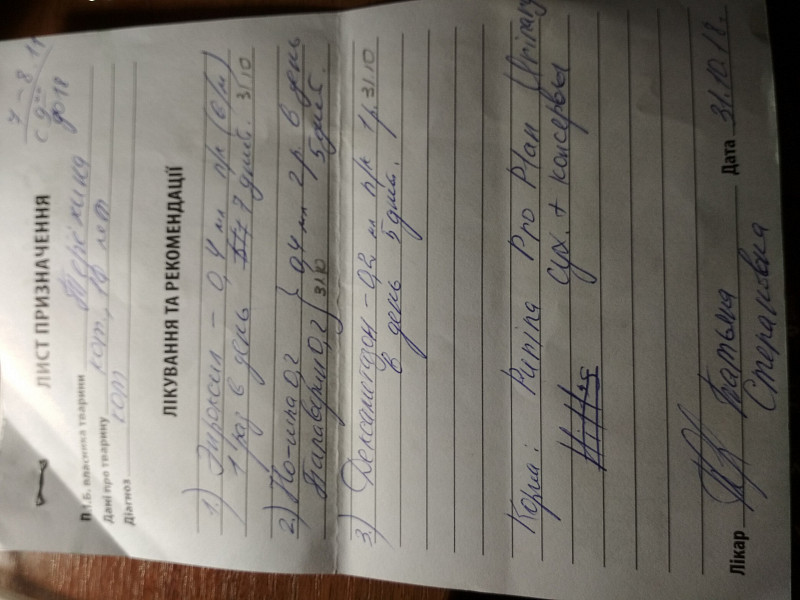 7 – 8 11
с 9
до 18
ЛИСТ ПРИЗНАЧЕННЯ
П.І.Б. власника тварини Терёхина
Дані про тварину кот, 10 лет
Діагноз кот
ЛІКУВАННЯ ТА РЕКОМЕНДАЦІЇ
1) Энроксил – 0,4 мл п/к (в/м)
1 раз в день 7 дней. 31.10
2) Но-шпа 0,2 } 0,4 мл 2 р. в день
Папаверин 0,2 } 31.10 5 дней.
3) Дексаметазон – 0,2 мл п/к 1 р. 31.10
в день 5 дней.
Корма: Purina Pro Plan Urinary
сух. + консервы
Лікар Татьяна Дата 31.10.18.
Степановна